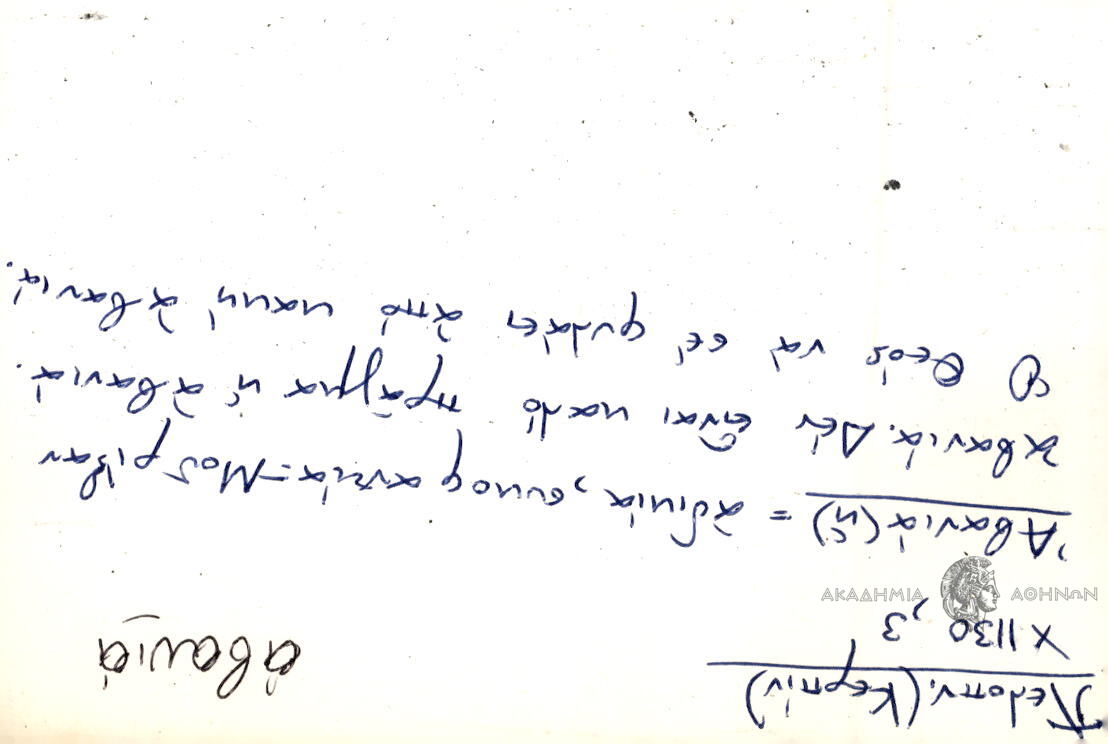 Πελοπν. (Κερπίν)
Χ 1130, 3
ἀβανιά
ΑΚΑΔΗΜΙΑ ΑΘΗΝΩΝ
Ἀβανιά (ἡ) = ἀδικιά, συκοφαντεία - Μοῦ ρίξαν
ἀβανιά. Δέν εἶναι καλό πρᾶγμα ἡ ἀβανιά.
Ὁ Θεός νά σέ φυλάει ἀπό κακή ἀβανιά.